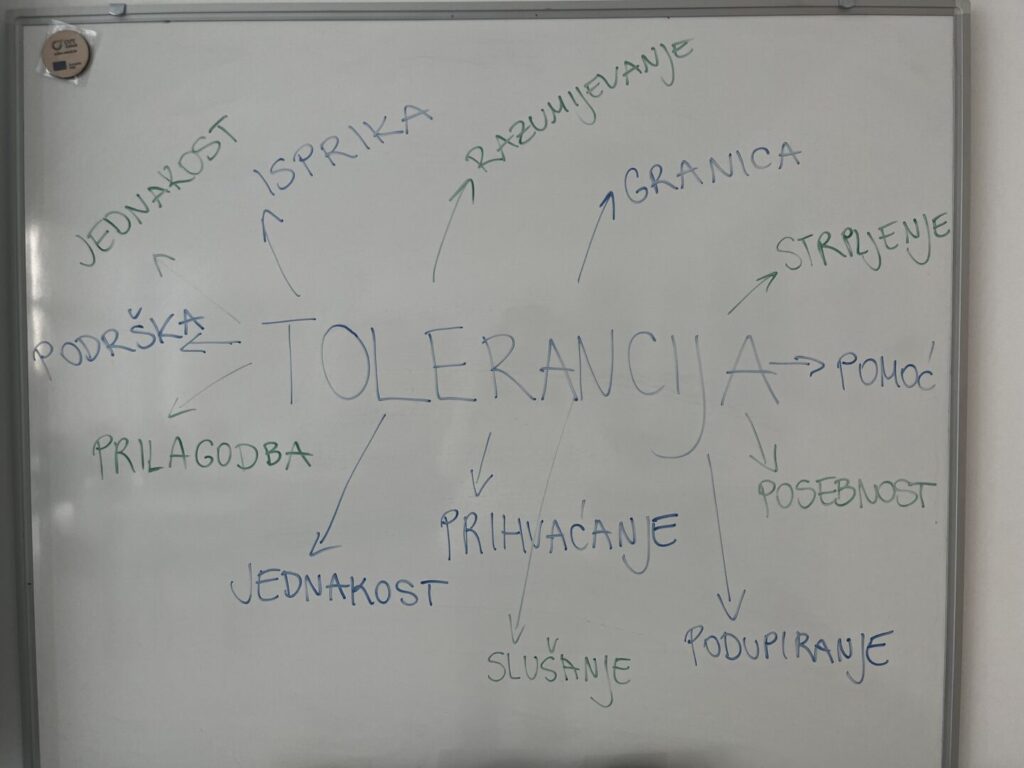 RAZUMIJEVANJE
ISPRIKA
JEDNAKOST
GRANICA
STRPLJENJE
PODRŠKA
TOLERANCIJA
POMOĆ
PRILAGODBA
POSEBNOST
PRIHVAĆANJE
JEDNAKOST
SLUŠANJE
PODUPIRANJE